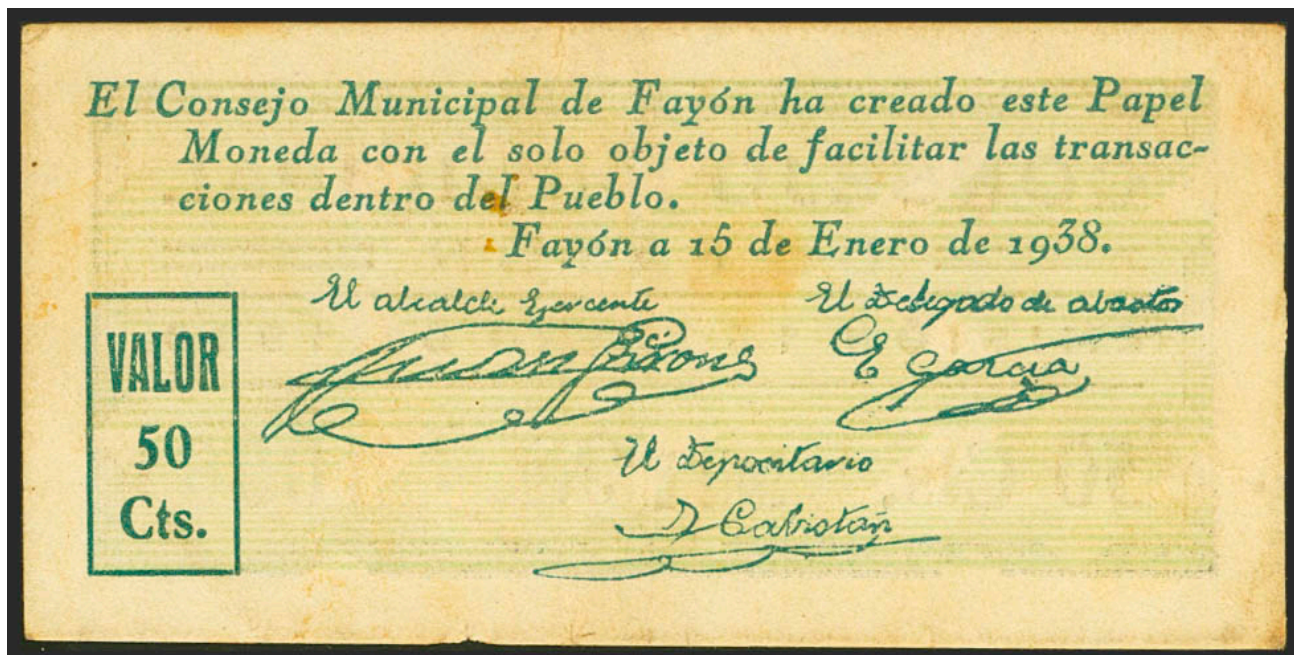 El Consejo Municipal de Fayón ha creado este Papel
Moneda con el solo objeto de facilitar las transac-
ciones dentro del Pueblo.
Fayón a 15 de Enero de 1938.
El alcalde Ejerciente El Delegado de abastos
VALOR
Juan E García
50
El Depositario
Cts.